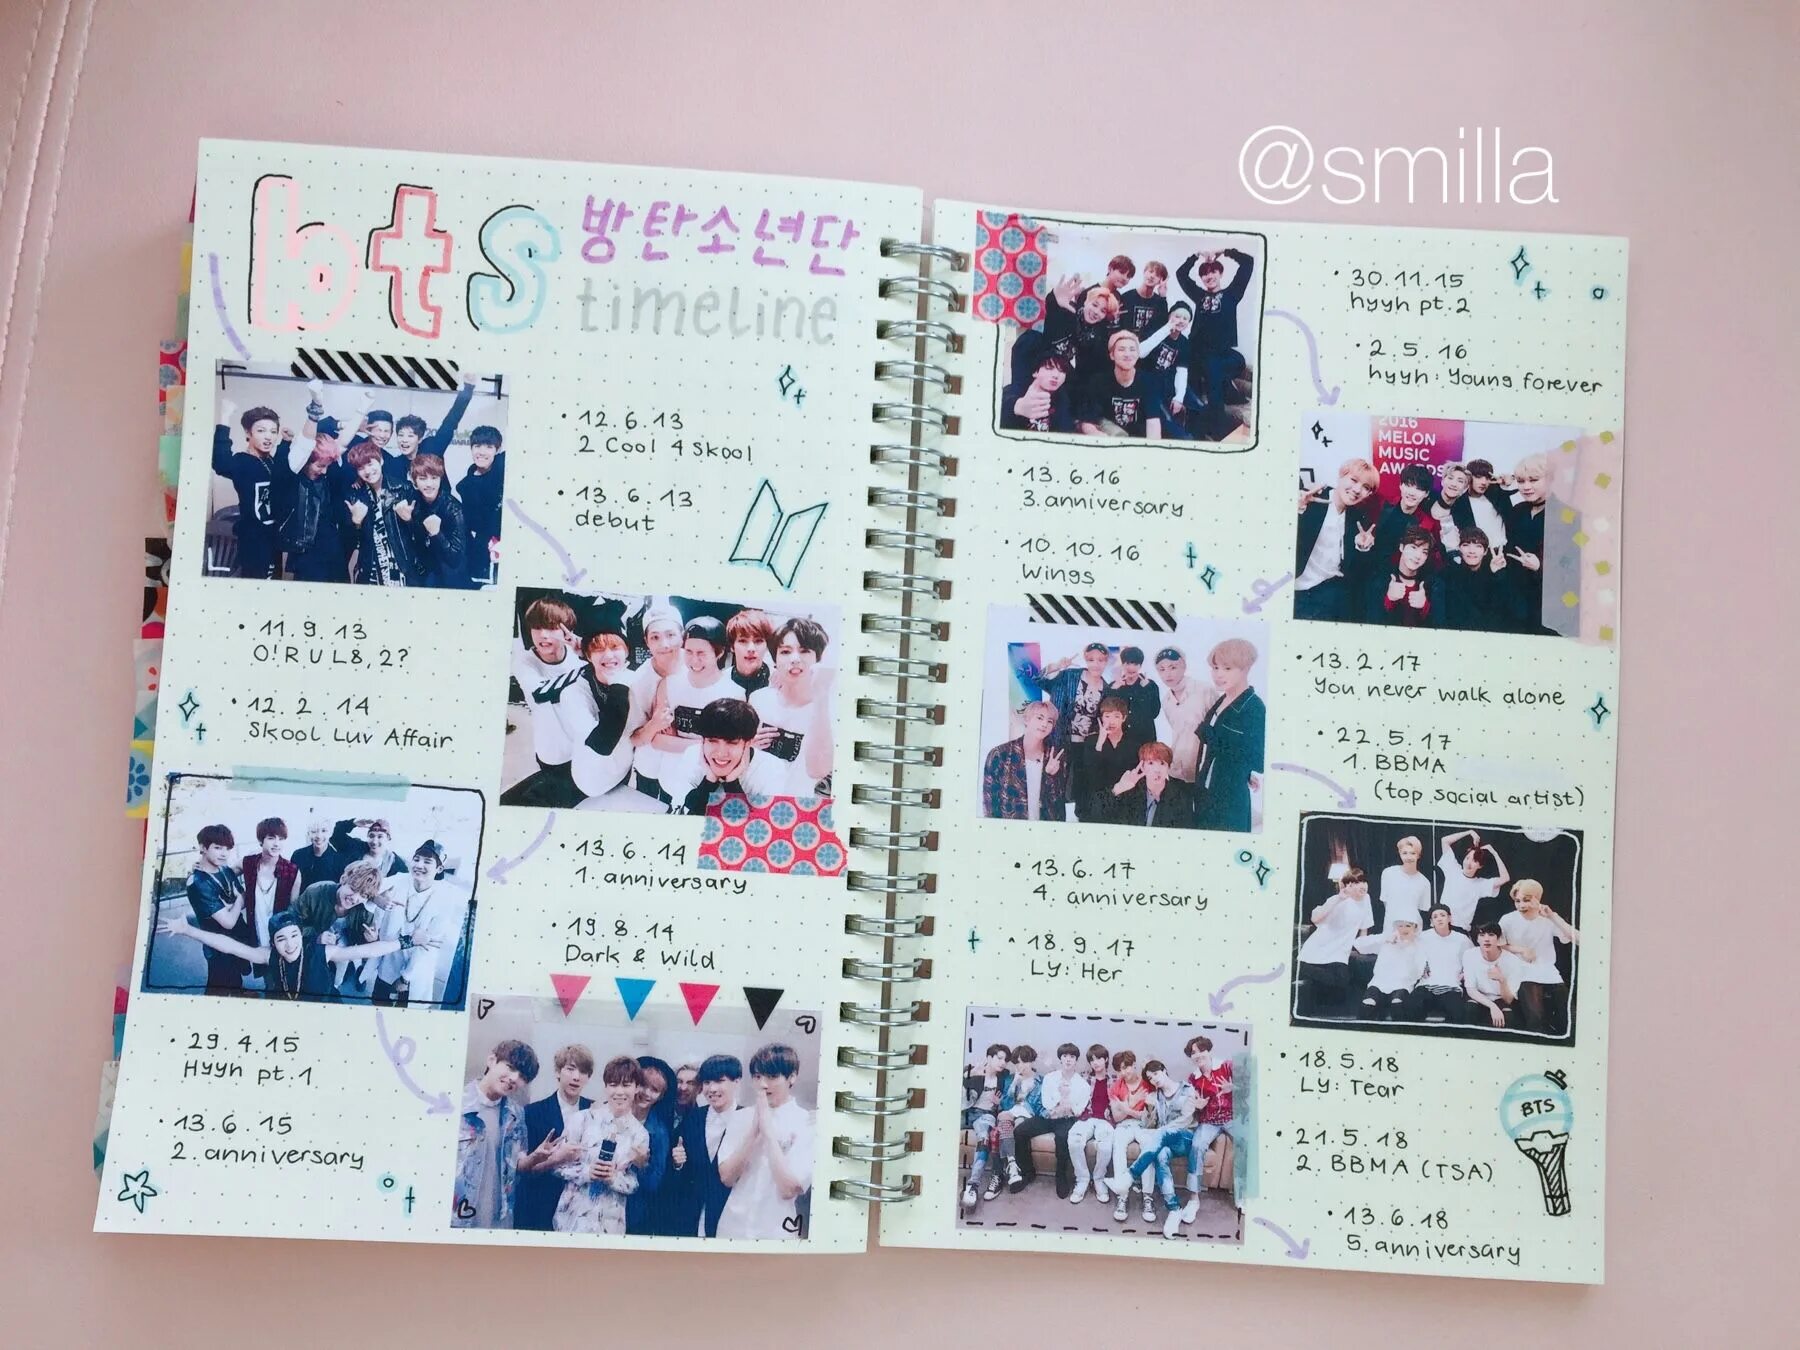 @smilla
bts
방탄소년단
timeline
12.6.13
2 Cool 4 Skool
13.6.13
debut
11.9.13
O!RUL8,2?
12.2.14
Skool Luv Affair
BTS
13.6.14
1. anniversary
19.8.14
Dark & Wild
29.4.15
Hyyh pt.1
13.6.15
2. anniversary
30.11.15
hyyh pt.2
2.5.16
hyyh: Young forever
2016
MELON
MUSIC
AWARDS
13.6.16
3. anniversary
10.10.16
Wings
13.2.17
You never walk alone
22.5.17
1. BBMA
(top social artist)
13.6.17
4. anniversary
18.9.17
LY: Her
18.5.18
LY: Tear
BTS
21.5.18
2. BBMA (TSA)
13.6.18
5. anniversary